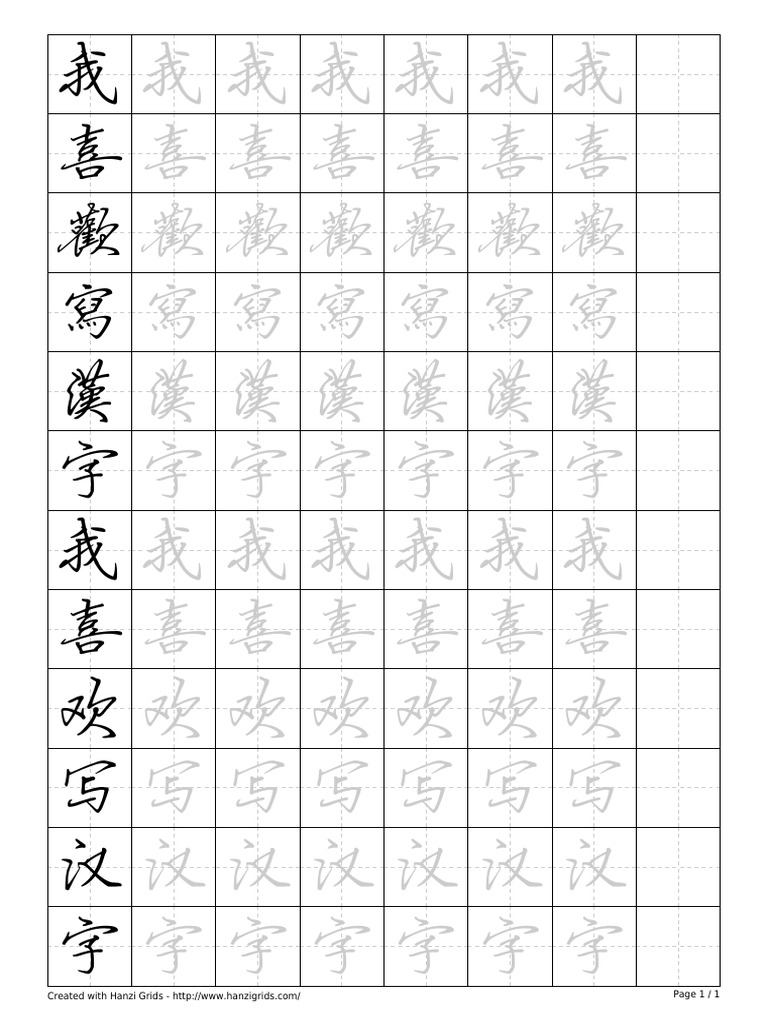 我 我 我 我 我 我 我
喜 喜 喜 喜 喜 喜 喜
歡 歡 歡 歡 歡 歡 歡
寫 寫 寫 寫 寫 寫 寫
漢 漢 漢 漢 漢 漢 漢
字 字 字 字 字 字 字
我 我 我 我 我 我 我
喜 喜 喜 喜 喜 喜 喜
欢 欢 欢 欢 欢 欢 欢
写 写 写 写 写 写 写
汉 汉 汉 汉 汉 汉 汉
字 字 字 字 字 字 字
Created with Hanzi Grids - http://www.hanzigrids.com/ Page 1 / 1